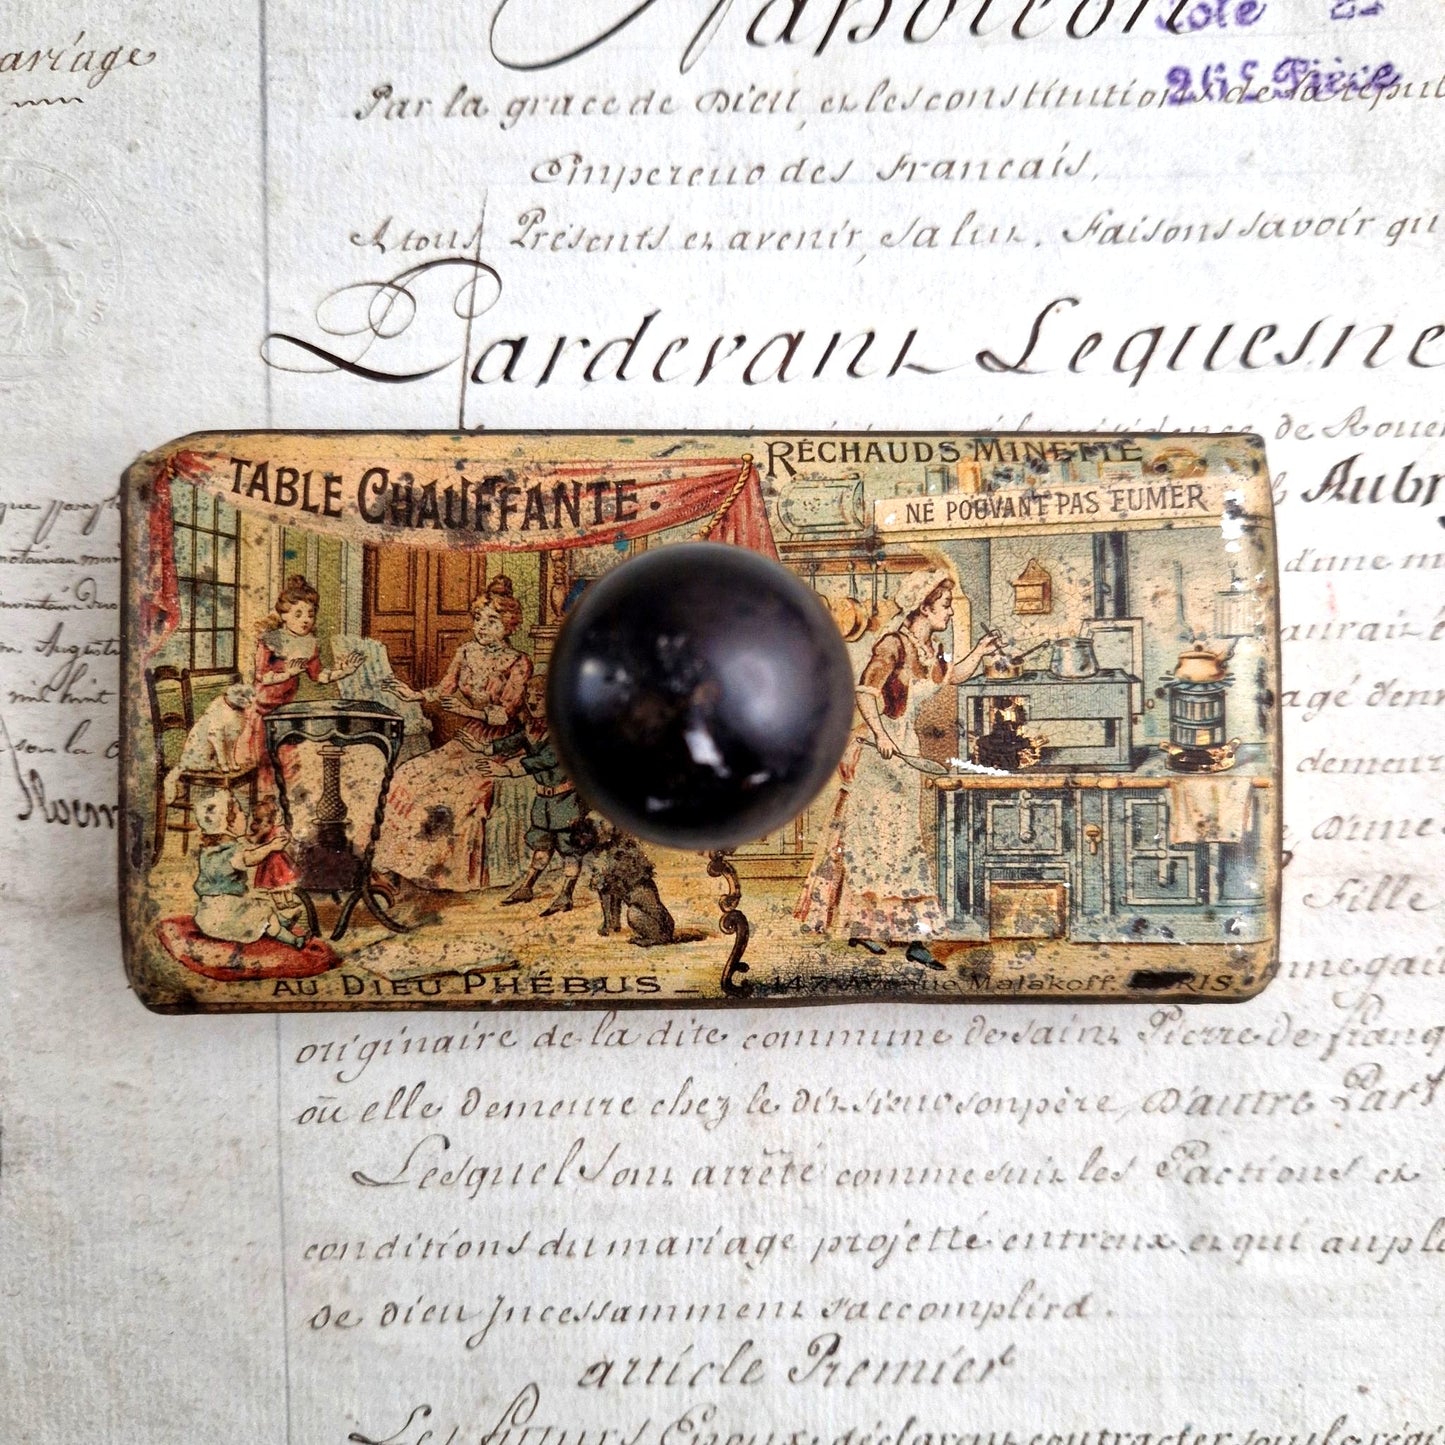 Napoléon
Cote
ariage
Par la grace de Dieu, et les constitutions de la
Empereur des Francais,
A tous Présents et avenir, Salut. Faisons savoir qu
Pardevant Lequesne
de Rouen
TABLE CHAUFFANTE.
RÉCHAUDS MINETTE
NE POUVANT PAS FUMER
Aubr
d'une m
demeur
Fille
AU DIEU PHÉBUS _ 147 Avenue Malakoff. PARIS.
originaire de la dite commune de Saint Pierre de franq
où elle demeure chez le dit Sieur son père, D'autre Part
Lesquels ont arrêté comme suit les Pactions et
conditions du mariage projetté entreux, et qui au pl
de Dieu Incessamment s'accomplira.
article Premier
Les futurs Epoux déclarent contracter sous le régi